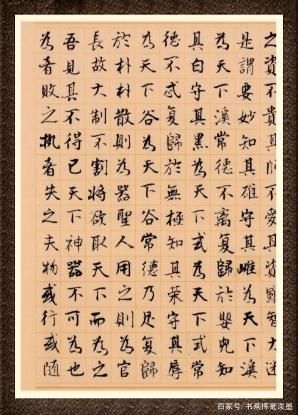 之資不貴其師不愛其資雖智大迷
是謂要妙知其雄守其雌為天下溪
為天下溪常德不離復歸於嬰兒知
其白守其黑為天下式為天下式常
德不忒復歸於無極知其榮守其辱
為天下谷為天下谷常德乃足復歸
於朴朴散則為器聖人用之則為官
長故大制不割將欲取天下而為之
吾見其不得已天下神器不可為也
為者敗之执者失之夫物或行或随
百家号/书 挥毫淡墨